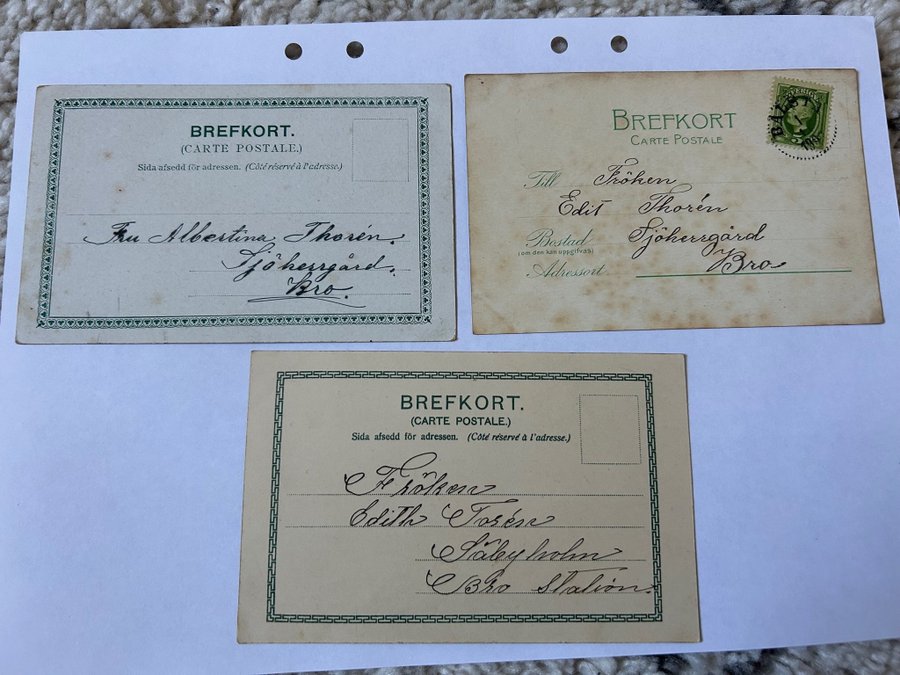 BREFKORT.
(CARTE POSTALE.)
Sida afsedd för adressen. (Côté réservé à l'adresse.)
Fru Albertina Thorén.
Sjöherrgård.
Bro.
BREFKORT
CARTE POSTALE
SVERIGE
BALSTA
Till Fröken
Edit Thorén
Bostad Sjöherrgård
(om den kan uppgifvas)
Bro
Adressort
BREFKORT.
(CARTE POSTALE.)
Sida afsedd för adressen. (Côté réservé à l'adresse.)
Fröken
Edith Torén
Säbyholm
Bro station.